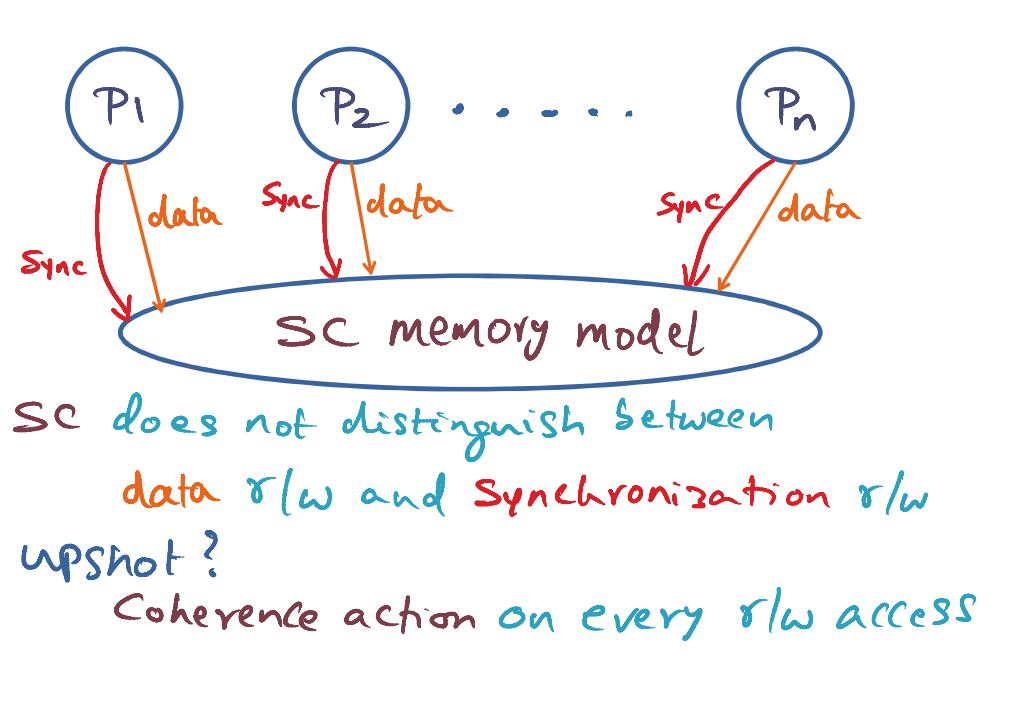 P1 P2 ..... Pn
sync data sync data sync data
SC memory model
SC does not distinguish between
data r/w and synchronization r/w
upshot?
Coherence action on every r/w access